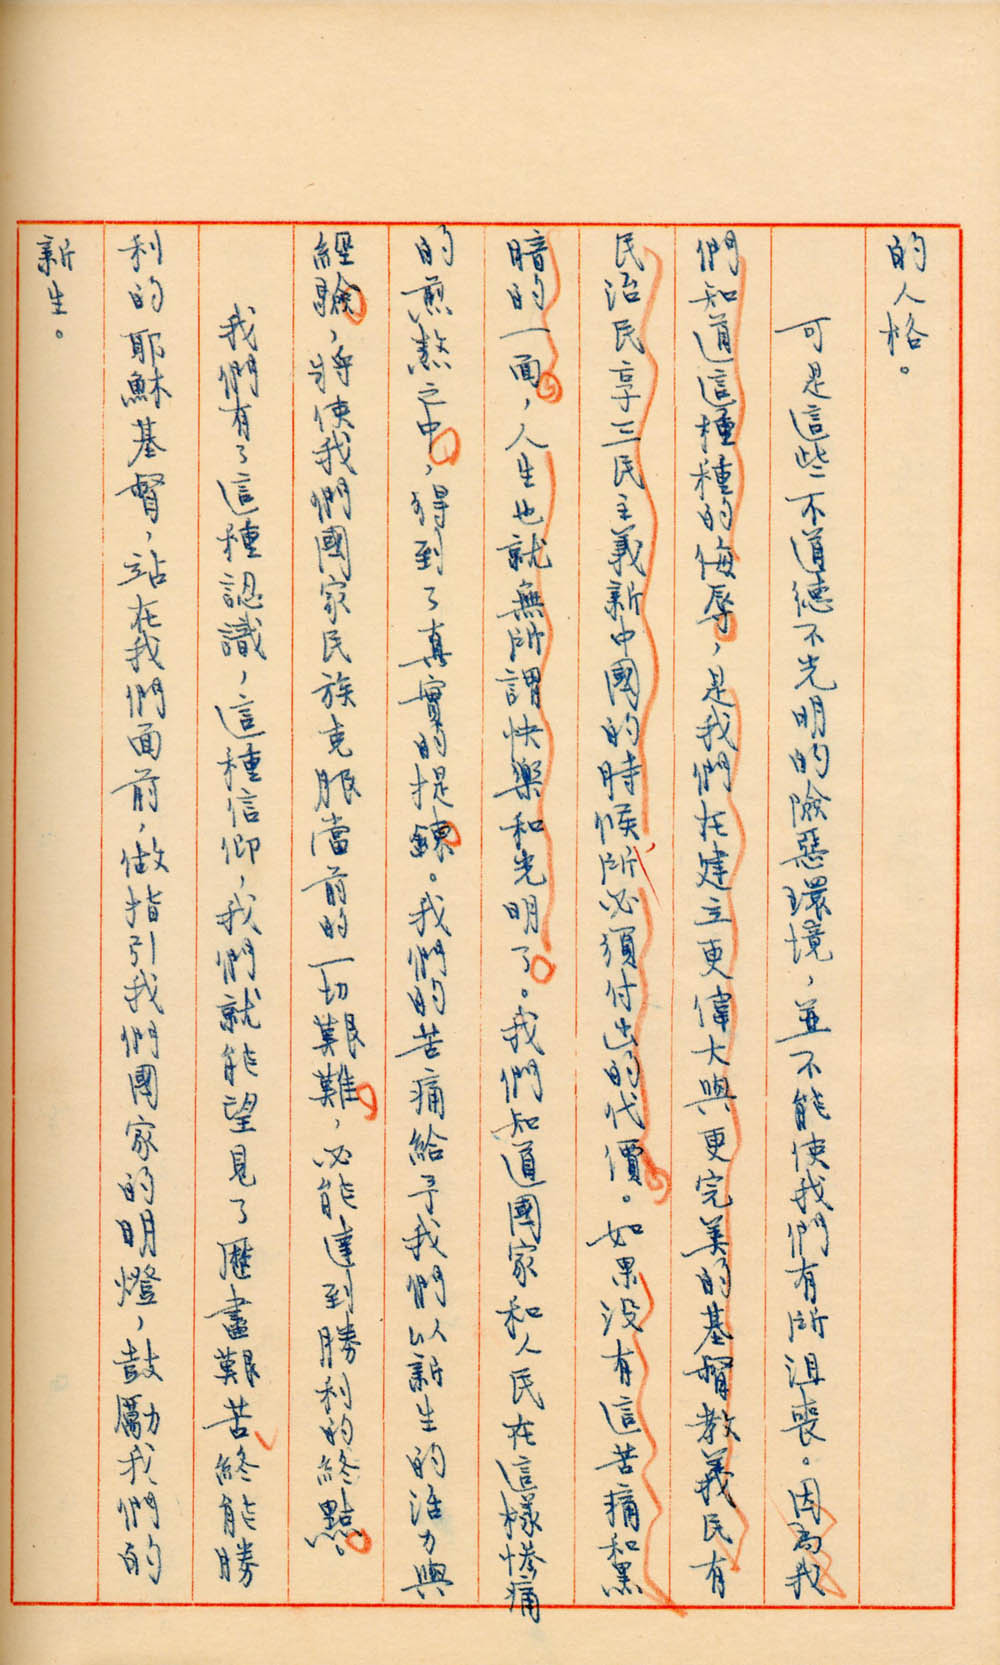 的人格。
可是這些不道德不光明的險惡環境，並不能使我們有所沮喪。因為我
們知道這種種的侮辱，是我們在建立更偉大與更完美的基督教義民有
民治民享三民主義新中國的時候所必須付出的代價。如果没有這苦痛和黑
暗的一面，人生也就無所謂快樂和光明了。我們知道國家和人民在這樣慘痛
的煎熬之中，得到了真實的提鍊。我們的苦痛給予我們以新生的活力與
經驗，將使我們國家民族克服當前的一切艱難，必能達到勝利的終點。
我們有了這種認識，這種信仰，我們就能望見了歷盡艱苦終能勝
利的耶穌基督，站在我們面前，做指引我們國家的明燈，鼓勵我們的
新生。